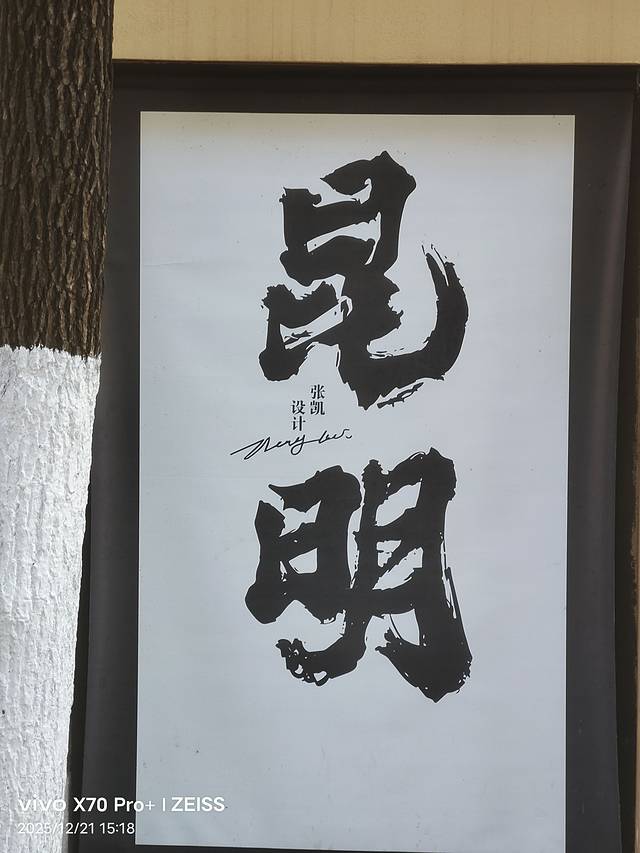 昆
明
张凯
设计
vivo X70 Pro+ | ZEISS
2025/12/21 15:18